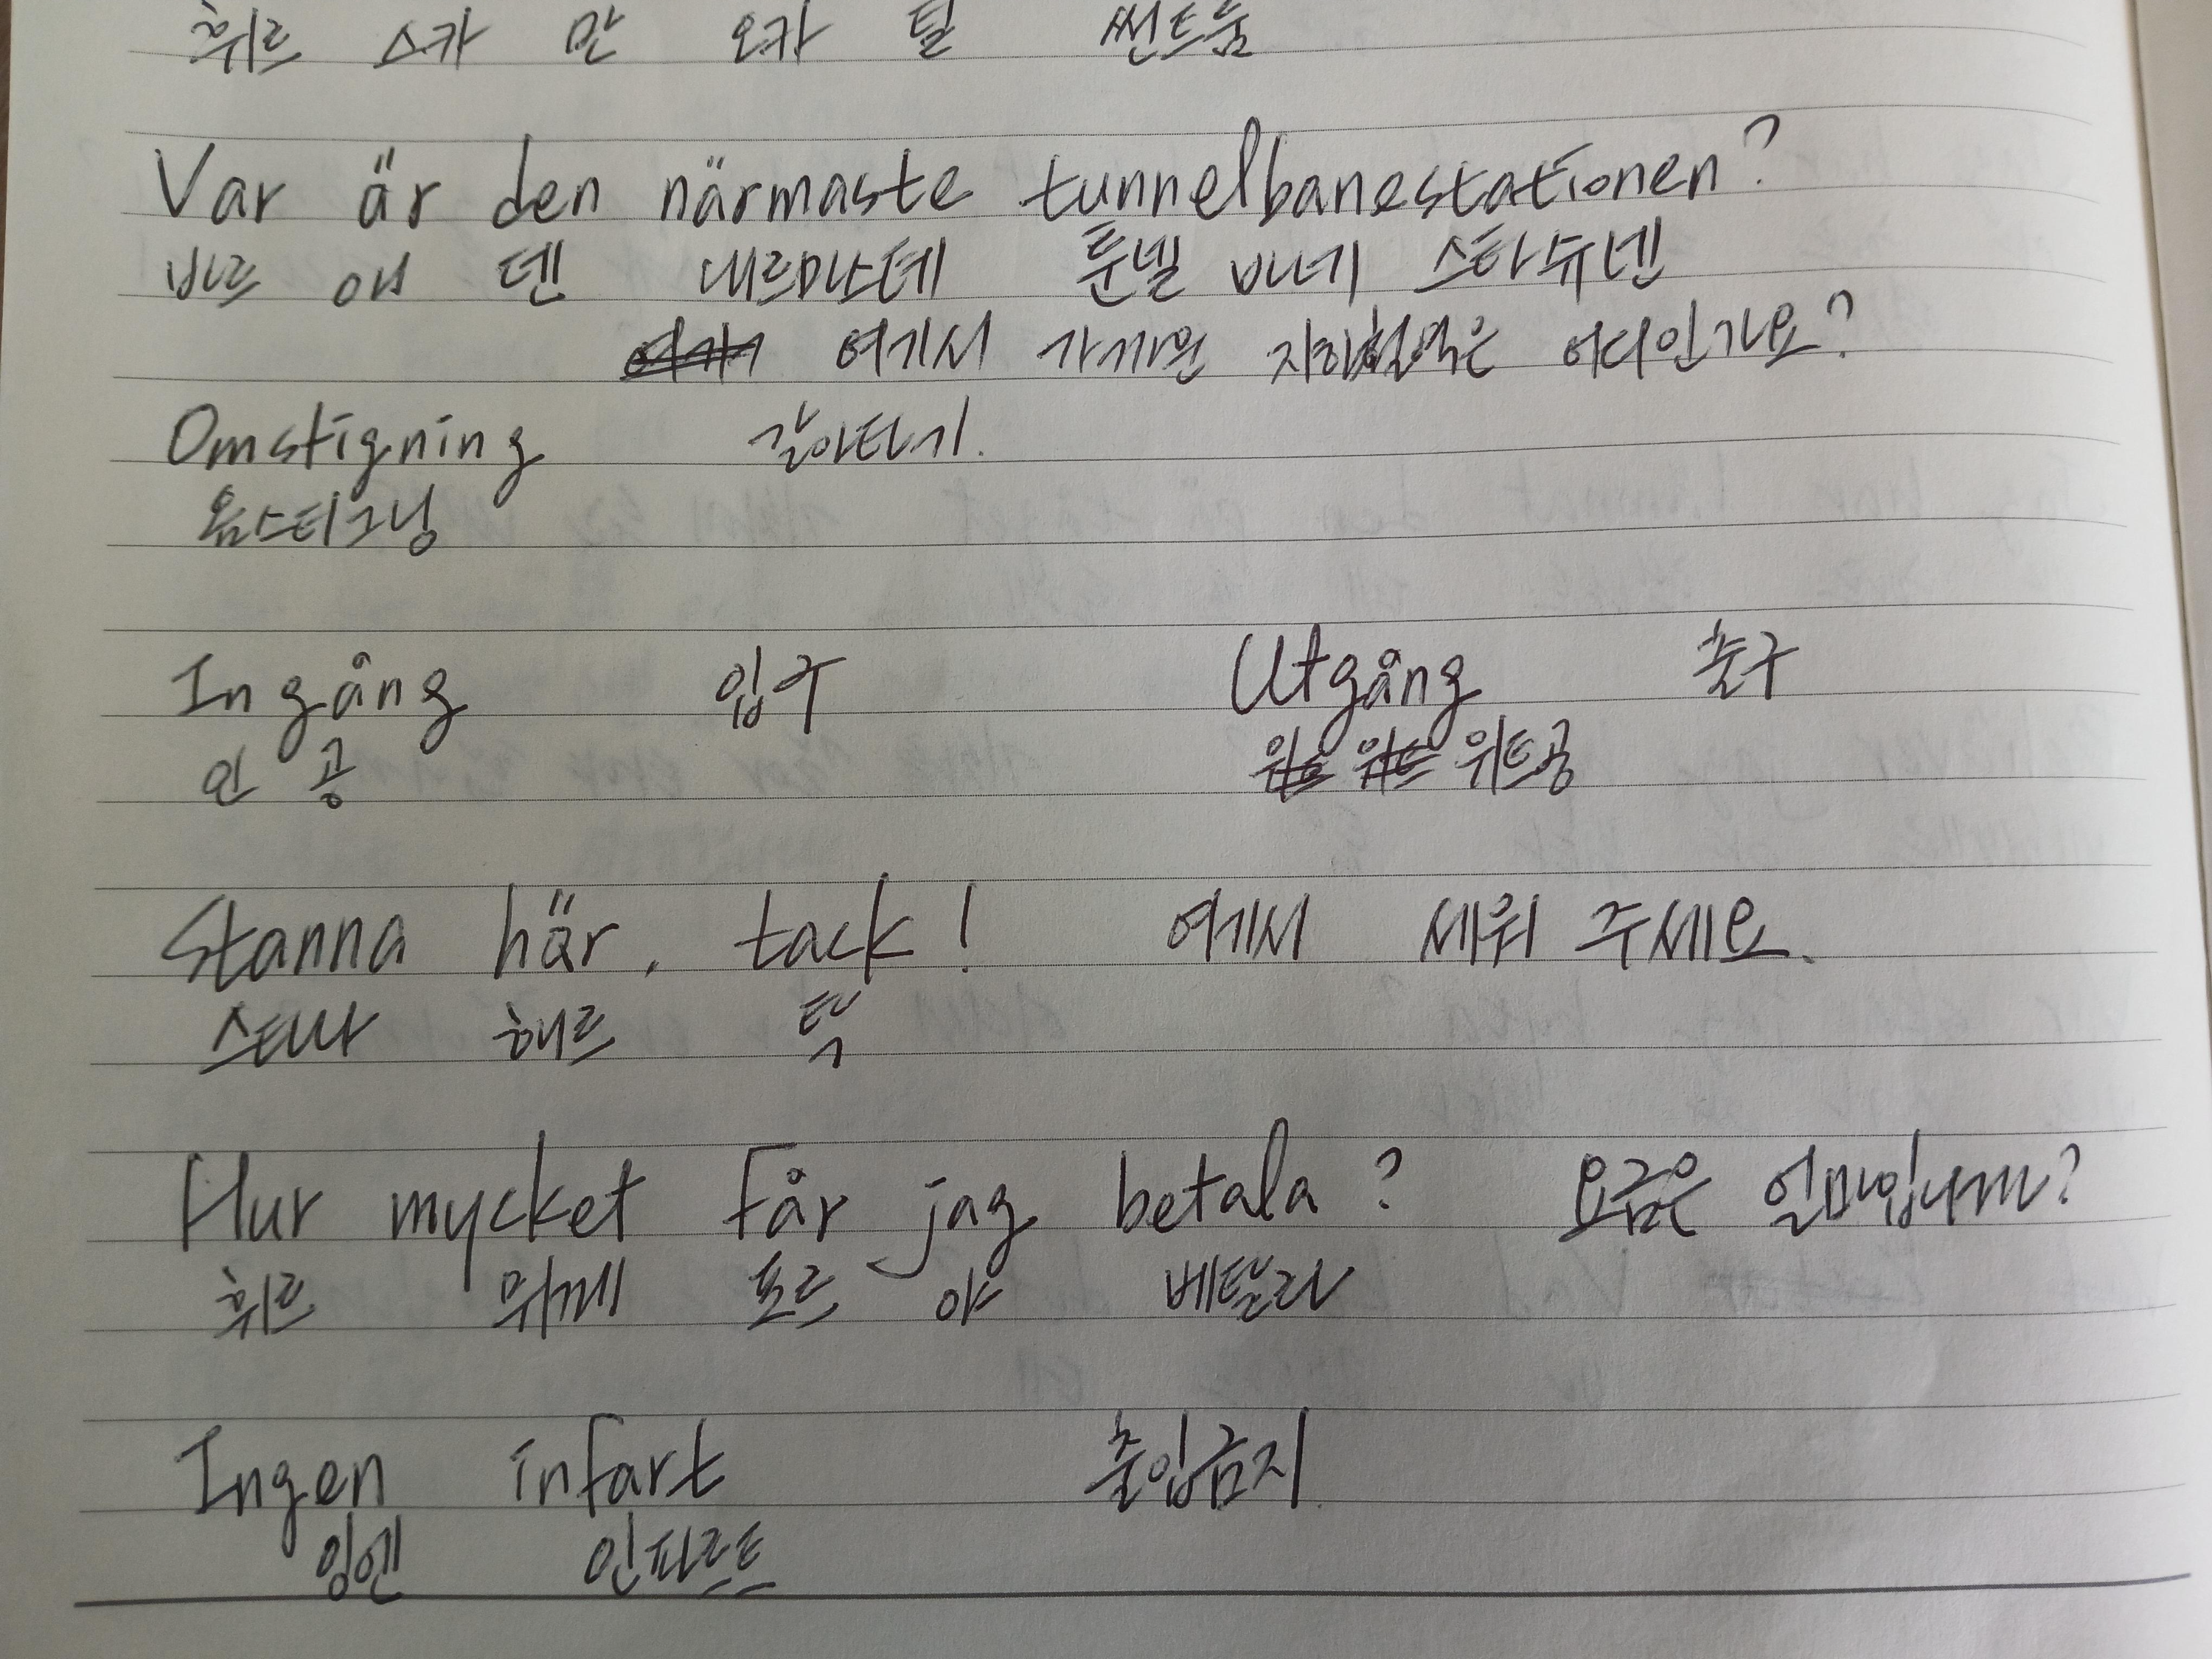 휘르 스카 만 오카 틸 쎈트룸
Var är den närmaste tunnelbanestationen?
바르 애 덴 내르마스테 툰넬 바네 스타슈넨
여기서 가까운 지하철역은 어디인가요?
Omstigning 갈아타기.
옴스티그닝
Ingång 입구 Utgång 출구
인 공 위트공
Stanna här, tack! 여기서 세워 주세요.
스타나 해르 탁
Hur mycket får jag betala? 요금은 얼마입니까?
휘르 뮈께 포르 야 베탈라
Ingen infart 출입금지.
잉엔 인파르트